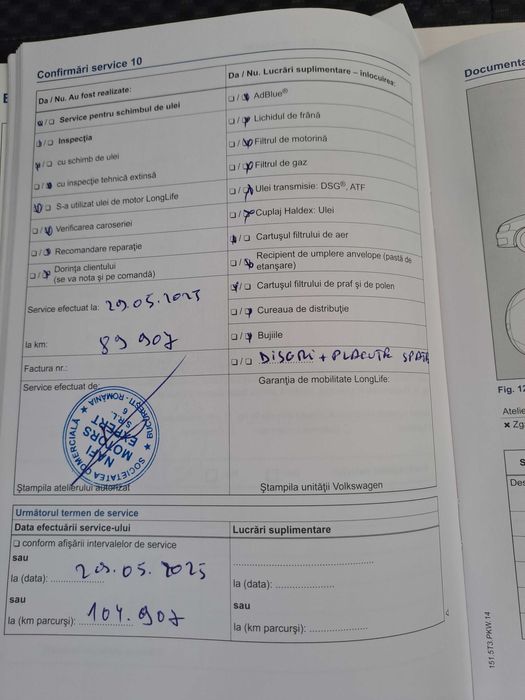 Confirmări service 10
Da / Nu. Au fost realizate:
❏/❏ Service pentru schimbul de ulei
❏/❏ Inspecția
❏/❏ cu schimb de ulei
❏/❏ cu inspecție tehnică extinsă
❏/❏ S-a utilizat ulei de motor LongLife
❏/❏ Verificarea caroseriei
❏/❏ Recomandare reparație
❏/❏ Dorința clientului
(se va nota și pe comandă)
Service efectuat la: 29.05.2023
la km: 89 907
Factura nr.:
Da / Nu. Lucrări suplimentare – înlocuirea:
❏/❏ AdBlue®
❏/❏ Lichidul de frână
❏/❏ Filtrul de motorină
❏/❏ Filtrul de gaz
❏/❏ Ulei transmisie: DSG®, ATF
❏/❏ Cuplaj Haldex: Ulei
❏/❏ Cartușul filtrului de aer
❏/❏ Recipient de umplere anvelope (pastă de
etanșare)
❏/❏ Cartușul filtrului de praf și de polen
❏/❏ Cureaua de distribuție
❏/❏ Bujiile
❏/❏ DISCURI + PLACUTE SPATE
Service efectuat de:
SOCIETATEA COMERCIALĂ ★ BUCUREȘTI - ROMÂNIA ★
NAFI
MOTORS
EXPERT
S.R.L.
6
Ștampila atelierului autorizat
Garanția de mobilitate LongLife:
Ștampila unității Volkswagen
Următorul termen de service
Data efectuării service-ului
❏ conform afișării intervalelor de service
sau
la (data): 29.05.2025
sau
la (km parcurși): 104.907
Lucrări suplimentare
la (data):
sau
la (km parcurși):
Documenta
Fig. 12
Atelie
× Zg
S
Des
151.5T3.PKW.14